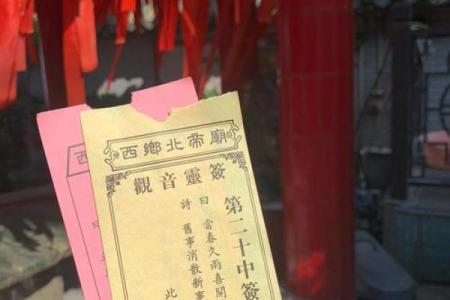 西鄉北帝廟
觀音靈簽
第二十中簽
詩曰
當春久雨喜開
舊事消散新事
此
西